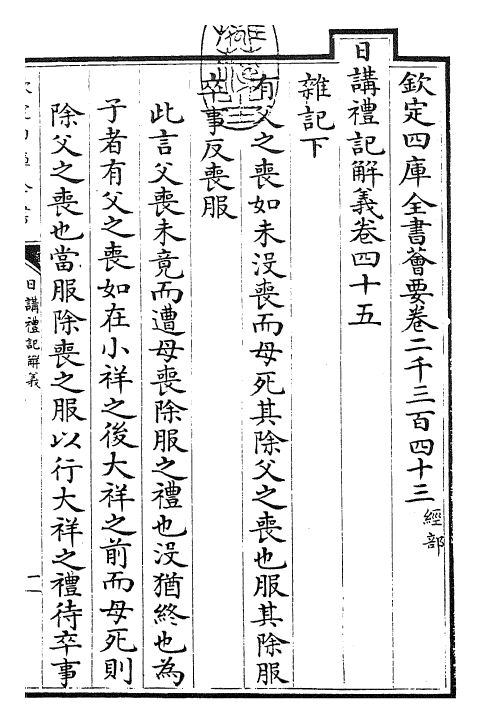 欽定四庫全書薈要卷二千三百四十三 經部
日講禮記解義卷四十五
雜記下
有父之喪如未沒喪而母死其除父之喪也服其除服
卒事反喪服
此言父喪未竟而遭母喪除服之禮也沒猶終也為
子者有父之喪如在小祥之後大祥之前而母死則
除父之喪也當服除喪之服以行大祥之禮待卒事
日講禮記解義